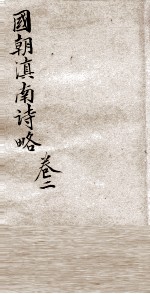 國朝滇南诗略
卷二